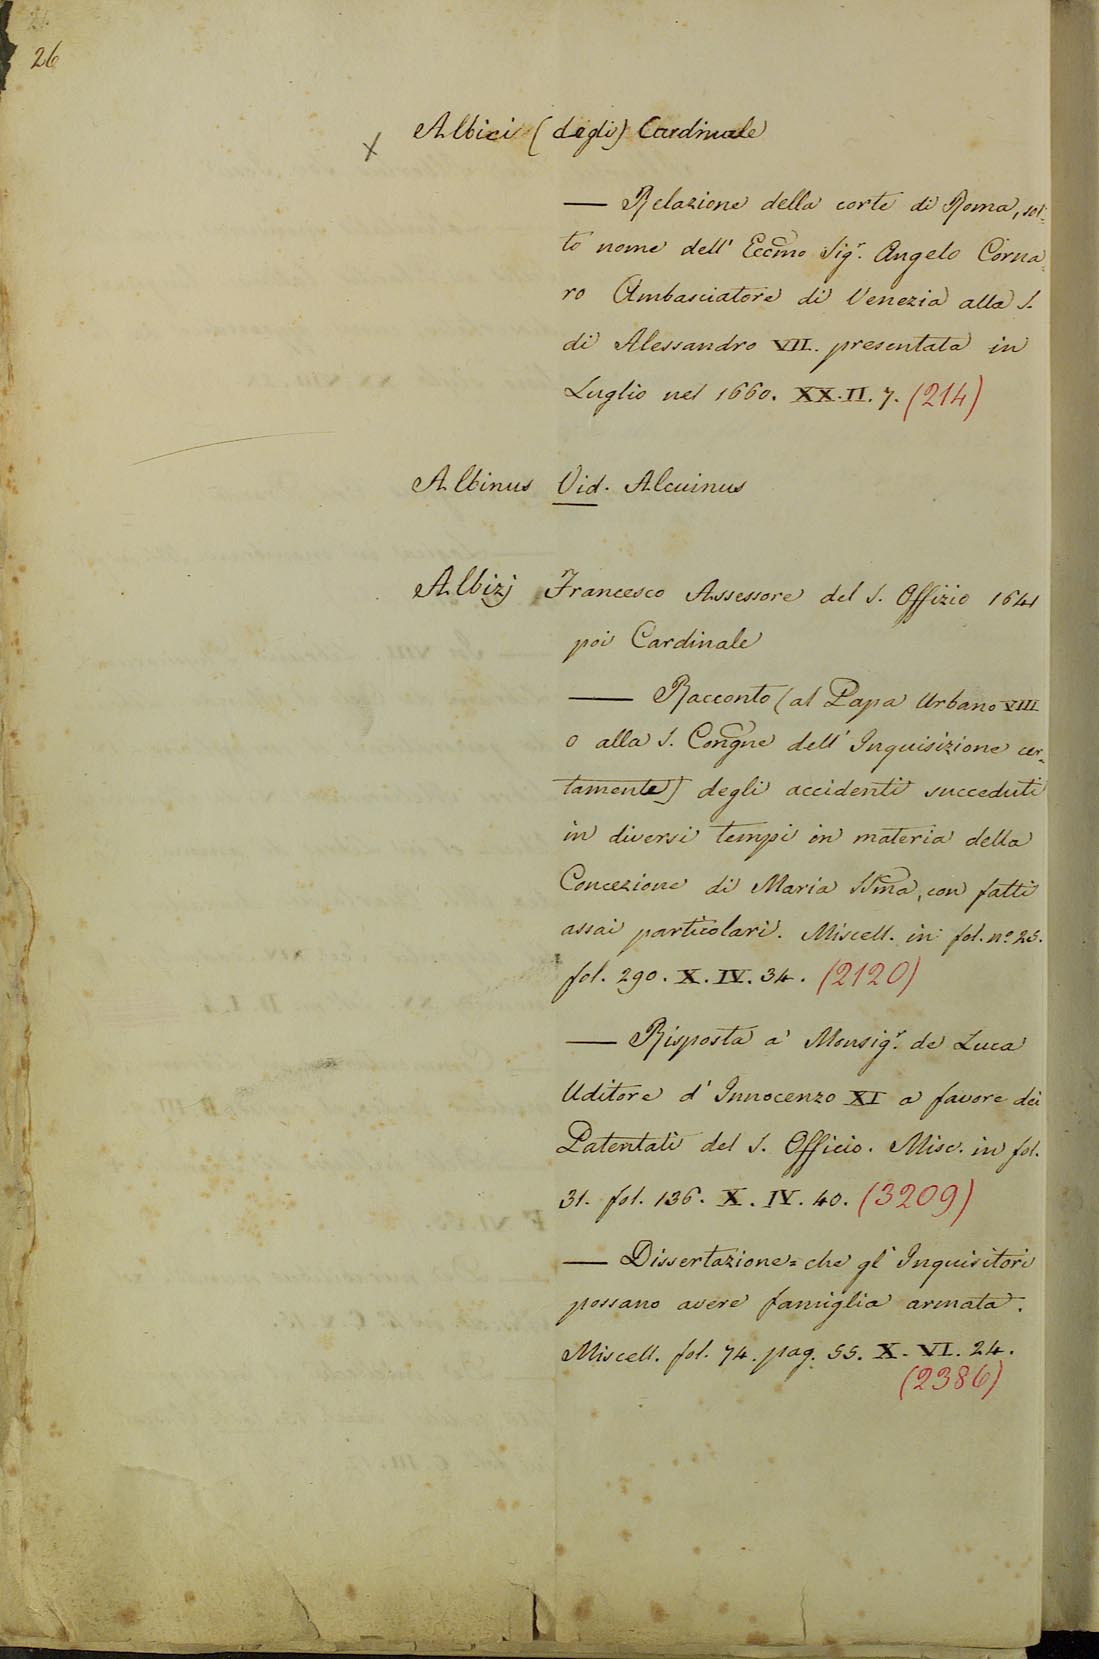 26
x Albici (degli) Cardinale
— Relazione della corte di Roma, sot-
to nome dell' Eccmo Sigr. Angelo Corna-
ro Ambasciatore di Venezia alla S.
di Alessandro VII. presentata in
Luglio nel 1660. XX.II.7. (214)
Albinus Vid. Alcuinus
Albizj Francesco Assessore del S. Offizio 1641
poi Cardinale
— Racconto (al Papa Urbano VIII
o alla S. Congne dell' Inquisizione cer-
tamente) degli accidenti succeduti
in diversi tempi in materia della
Concezione di Maria SSma, con fatti
assai particolari. Miscell. in fol. nº 25.
fol. 290. X. IV. 34. (2120)
— Risposta a' Monsigr. de Luca
Uditore d' Innocenzo XI a favore dei
Patentati del S. Officio. Misc. in fol.
31. fol. 136. X. IV. 40. (3209)
— Dissertazione = che gl' Inquisitori
possano avere famiglia armata.
Miscell. fol. 74. pag. 55. X. VI. 24.
(2386)